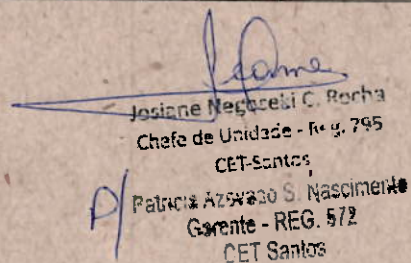 Josiane Negocebi C. Rocha
Chefe de Unidade - Reg. 795
CET-Santos
P/ Patricia Azevedo S. Nascimento
Gerente - REG. 572
CET Santos